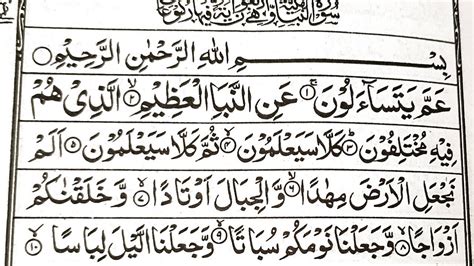 سورة النبا
بِسْمِ اللهِ الرَّحْمٰنِ الرَّحِيْمِ
عَمَّ يَتَسَآءَلُوْنَ ۝۱ عَنِ النَّبَاِ الْعَظِيْمِ ۝۲ الَّذِيْ هُمْ
فِيْهِ مُخْتَلِفُوْنَ ۝۳ كَلَّا سَيَعْلَمُوْنَ ۝۴ ثُمَّ كَلَّا سَيَعْلَمُوْنَ ۝۵ اَلَمْ
نَجْعَلِ الْاَرْضَ مِهٰدًا ۝۶ وَّالْجِبَالَ اَوْتَادًا ۝۷ وَّخَلَقْنٰكُمْ
اَزْوَاجًا ۝۸ وَّجَعَلْنَا نَوْمَكُمْ سُبَاتًا ۝۹ وَّجَعَلْنَا الَّيْلَ لِبَاسًا ۝۱۰